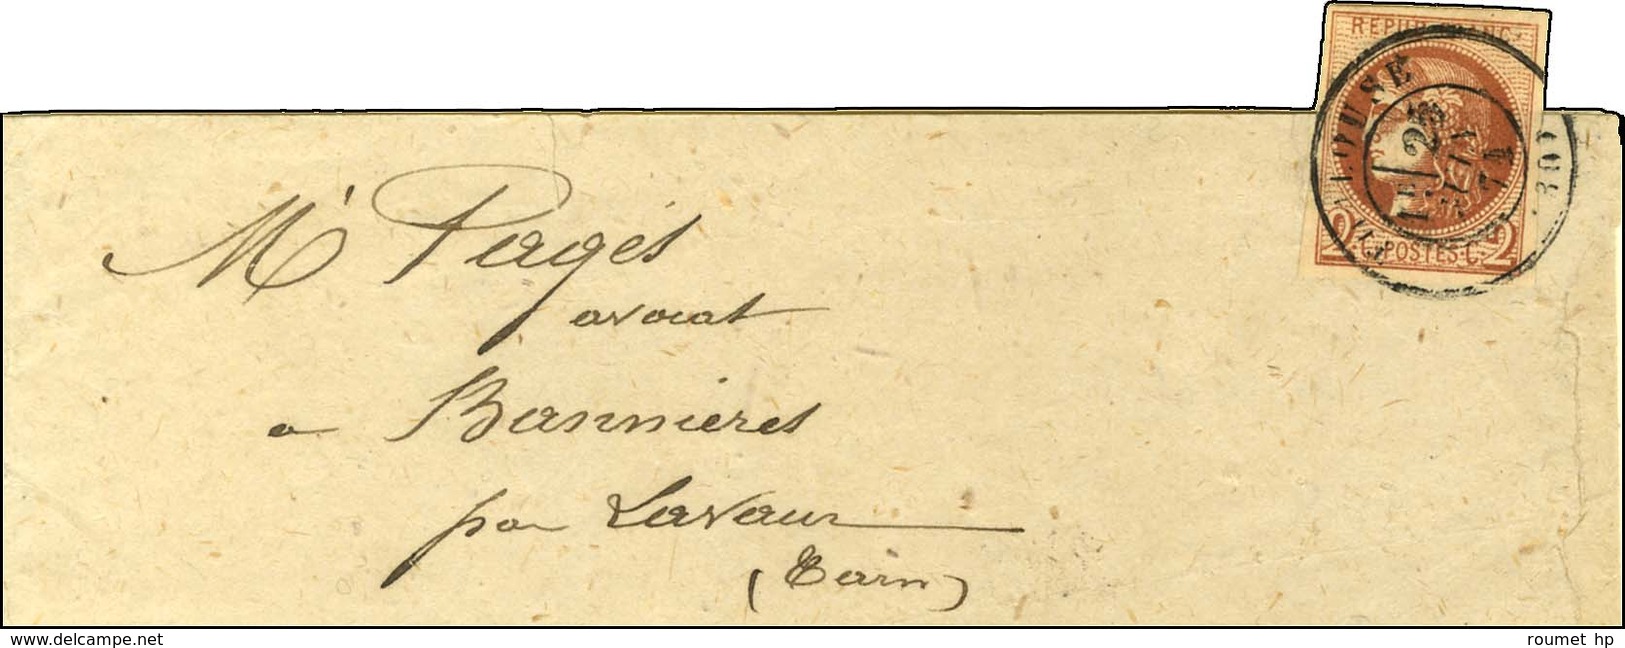 REPUB. FRANC.
TOULOUSE
1E/ 23
71
(30)
2 POSTES C. 2
Mr Pagès
avocat
a Bannieres
par Lavaur
(Tarn)
www.delcampe.net
roumet hp